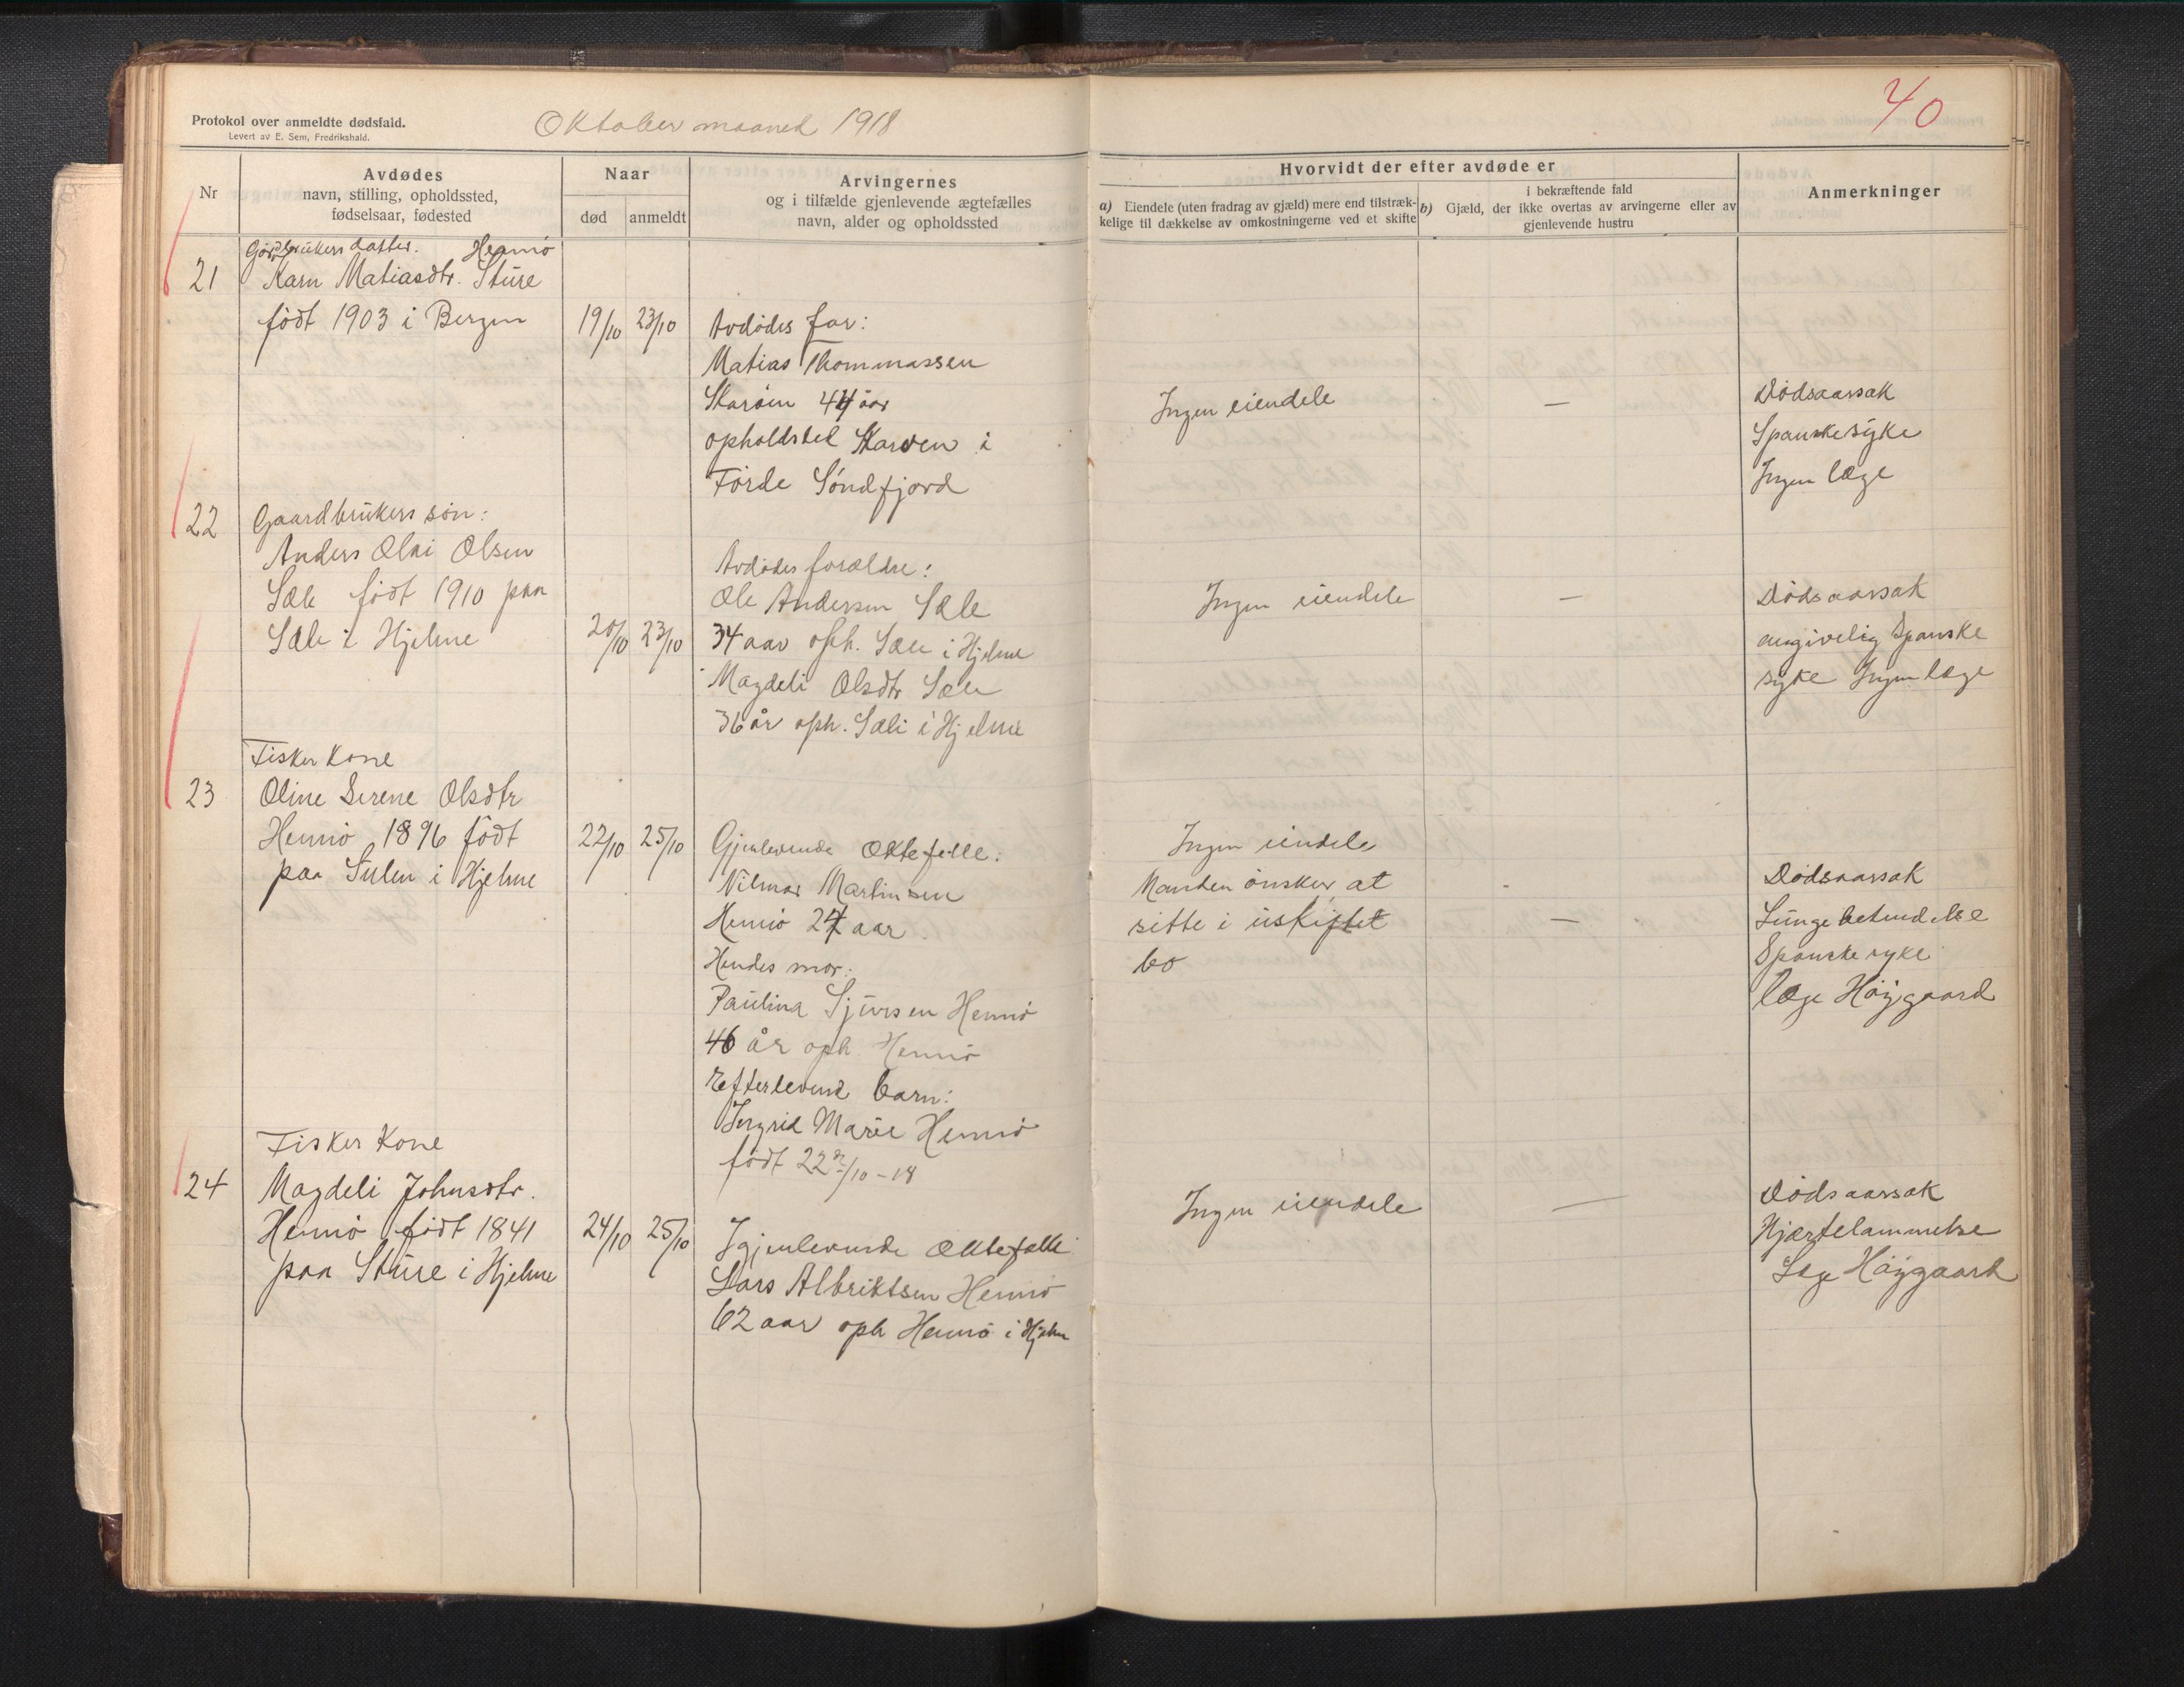 Protokol over anmeldte dødsfald.
Levert av E. Sem, Fredrikshald.
Oktober maaned 1918
40
Nr
Avdødes
navn, stilling, opholdssted,
fødselsaar, fødested
Naar
død
anmeldt
Arvingernes
og i tilfælde gjenlevende ægtefælles
navn, alder og opholdssted
Hvorvidt der efter avdøde er
a) Eiendele (uten fradrag av gjæld) mere end tilstræk-
kelige til dækkelse av omkostningerne ved et skifte
i bekræftende fald
b) Gjæld, der ikke overtas av arvingerne eller av
gjenlevende hustru
Anmerkninger
21
datter. Hernø
Karn Matiasdtr. Sture
født 1903 i Bergen
19/10 23/10
Avdødes far:
Matias Thommassen
Skarøen 44 aar
opholdsted Skarøen i
Førde Søndfjord
Ingen eiendele
—
Dødsaarsak
Spanskesyke
Ingen læge
22
Gaardbrukers søn:
Anders Olai Olsen
Sæle født 1910 paa
Sæle i Hjelme
20/10 23/10
Avdødes forældre:
Ole Andersen Sæle
34 aar oph. Sæle i Hjelme
Magdeli Olsdtr Sæle
36 år oph. Sæle i Hjelme
Ingen eiendele
—
Dødsaarsak
angivelig Spanske
syke Ingen læge
23
Fisker Kone
Oline Serene Olsdtr
Hernø 1896 født
paa Sulen i Hjelme
22/10 25/10
Gjenlevende Ektefelle:
Vilmar Martinsen
Hernø 24 aar
Hendes mor:
Paulina Sjursen Hernø
46 år oph Hernø
Efterlevend barn:
Ingrid Marie Hernø
født 22/10-18
Ingen eiendele
Manden ønsker at
sitte i uskiftet
bo
—
Dødsaarsak
Lungebetendelse
Spanske syke
læge Høygaard
24
Fisker Kone
Magdeli Johnsdtr.
Hernø født 1841
paa Sture i Hjelme
24/10 25/10
Igjenlevende Ektefælle
Lars Albriktsen Hernø
62 aar oph Hernø i Hjelm
Ingen eiendele
—
Dødsaarsak
Hjærtelammelse
Læge Høygaard